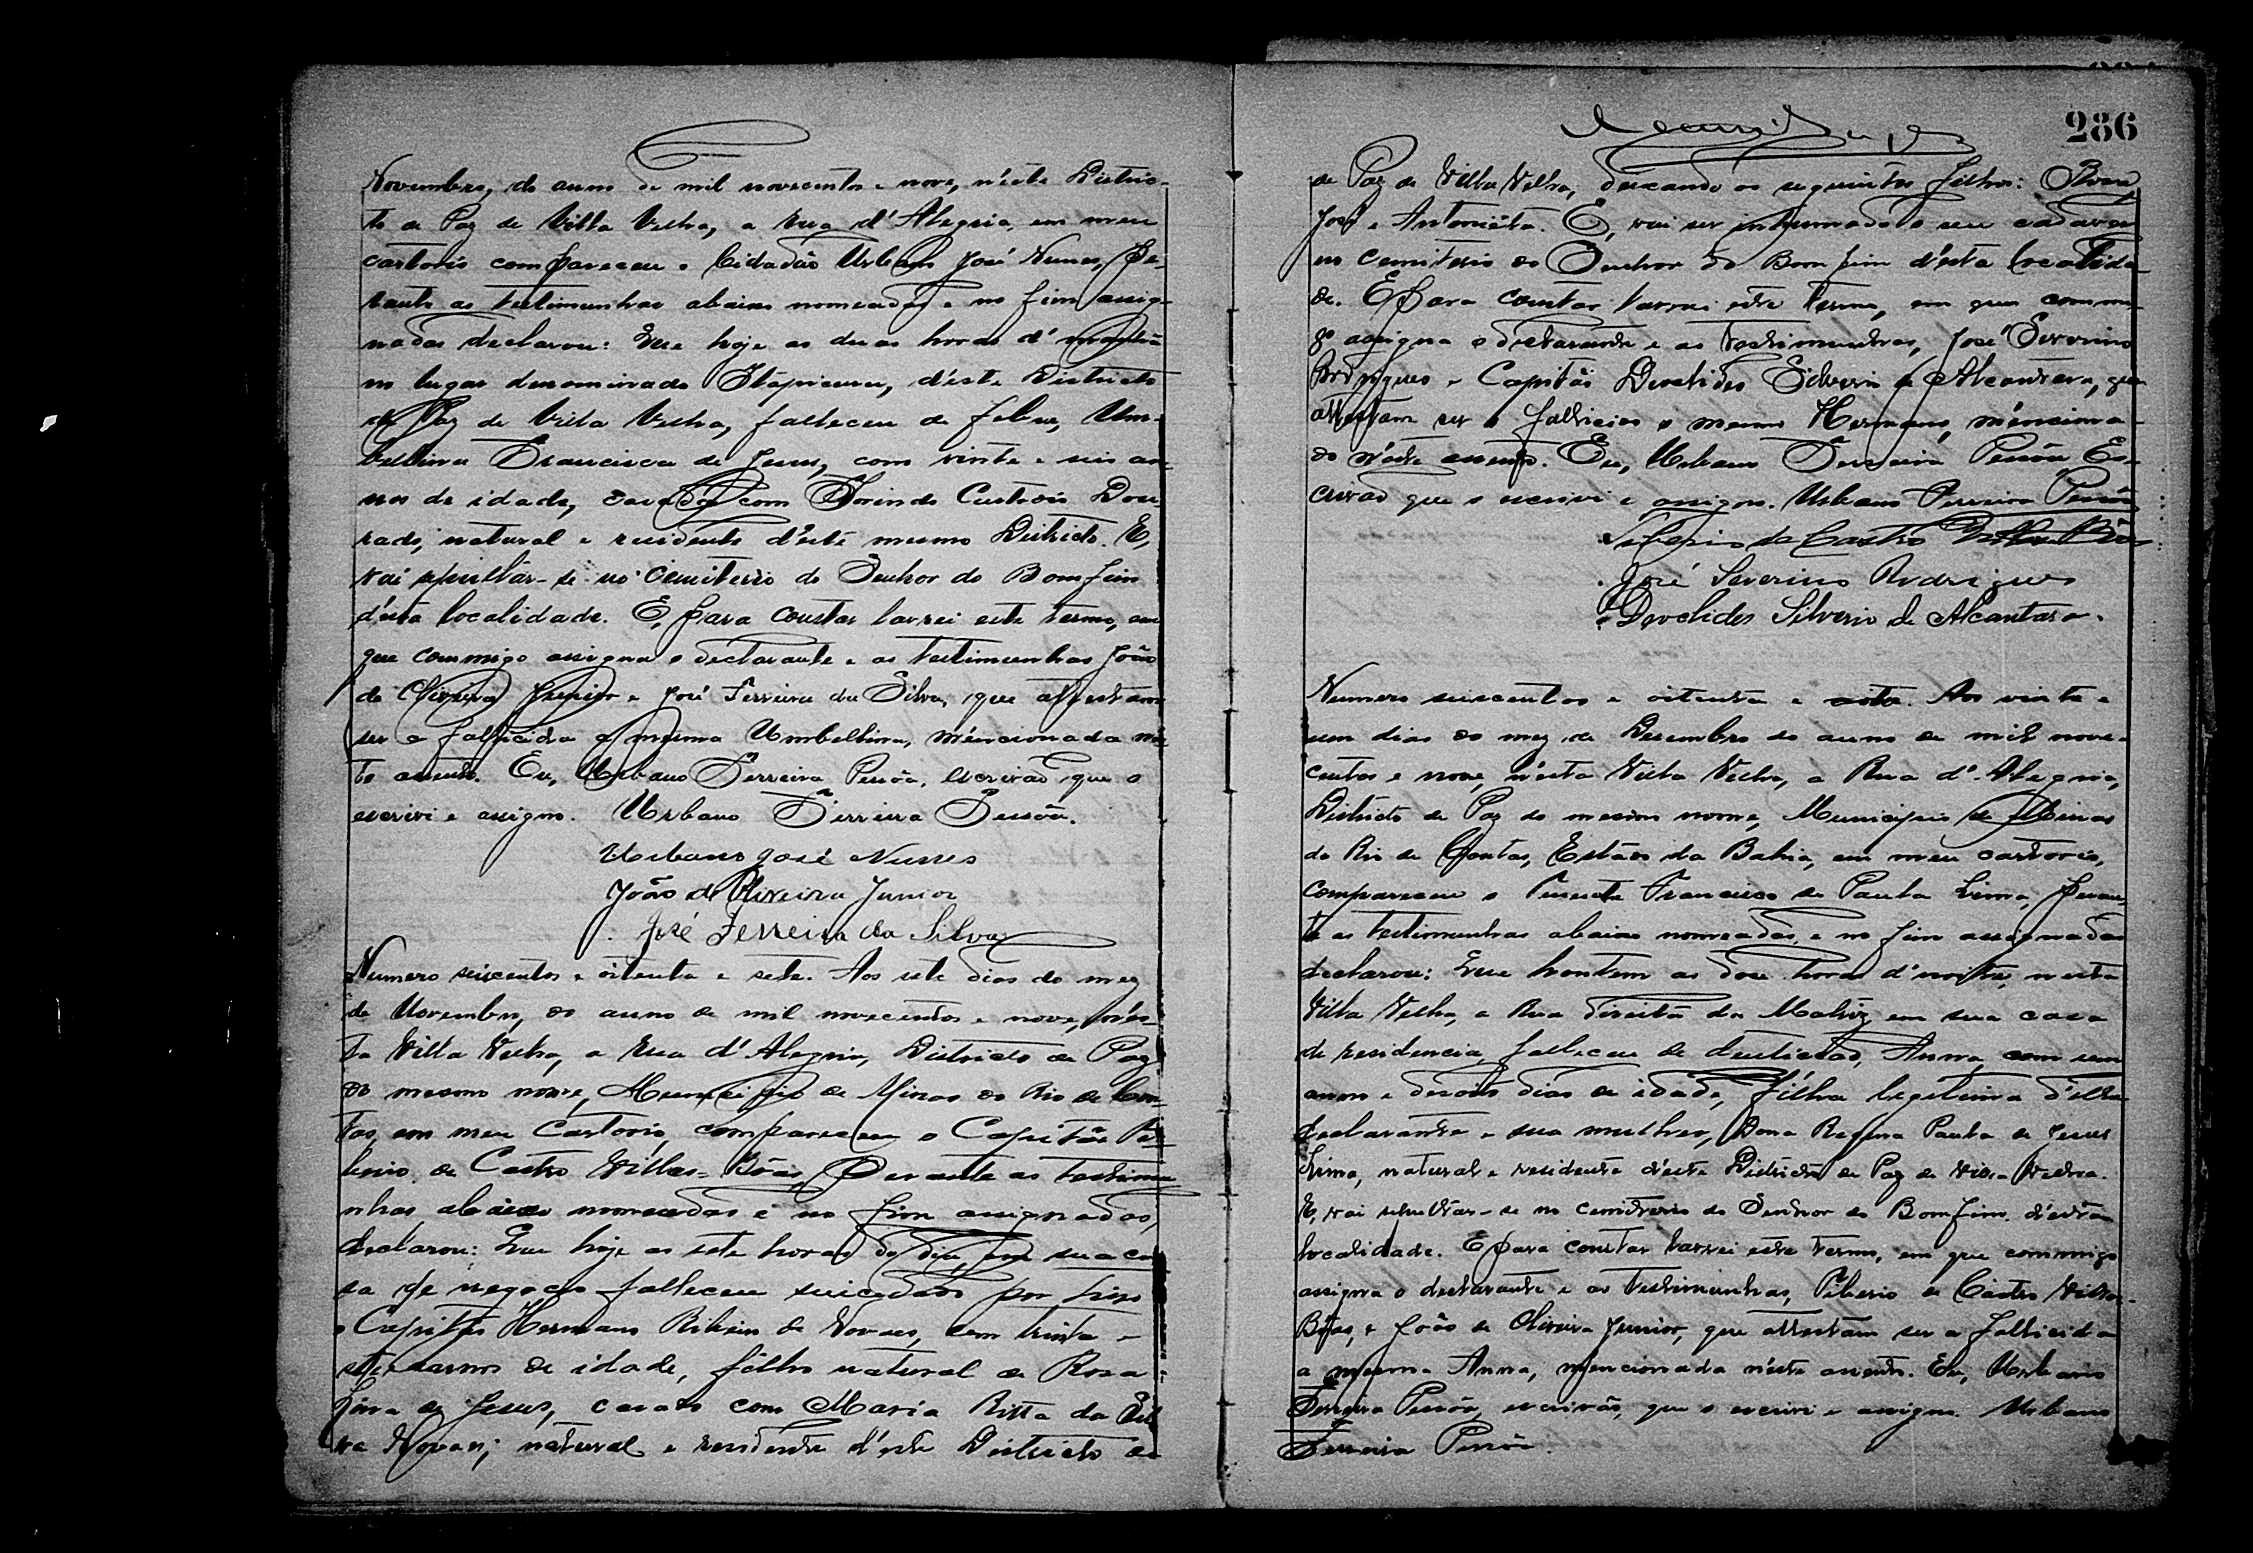 Novembro, do anno de mil novecentos e nove, n'este Distric-
to de Paz de Villa Velha, a rua d'Alegria, em meu
cartorio compareceu o Cidadão Urbano José Nunes, pe-
rante as testimunhas abaixo nomeadas e no fim assig-
nadas declarou: Que hoje as duas horas d'manhã
no lugar denominado Itapicuru, d'este Districto
de Paz de Villa Velha, falleceu de febre, Um-
bellina Francisca de Jesus, com vinte e seis an-
nos de idade, casada com Custodio Dou-
rado, natural e residente d'este mesmo Districto. E,
vai sepultar-se no Cemiterio do Senhor do Bomfim
d'esta localidade. E, para constar lavrei este termo, em
que commigo assigna o declarante e as testimunhas João
de Oliveira Junior e José Ferreira da Silva, que attestam
ser a fallicida a mesma Umbellina, mencionada nes-
te assento. Eu, Urbano Ferreira Pessôa, escrivão que o
escrivi e assigno. Urbano Ferreira Pessôa.
Urbano José Nunes
João de Oliveira Junior
José Ferreira da Silva
Numero seiscentos e oitenta e sete. Aos sete dias do mez
de Novembro, do anno de mil novecentos e nove, n'es-
ta Villa Velha, a rua d'Alegria, Districto de Paz
do mesmo nome, Municipio de Minas do Rio de Con-
tas, em meu Cartorio, compareceu o Capitão Ti-
berio de Castro Villas-Bôas, perante as testimu-
nhas abaixo nomeadas e no fim assignadas,
declarou: Que hoje as sete horas do dia, em sua ca-
sa de negocio falleceu suicidado por tiro
o Capitão Hermano Ribeiro de Novaes, com trinta e
sete annos de idade, filho natural de Rosa
de Jesus, casado com Maria Ritta da Sil-
va Novaes; natural e residente d'este Districto de
286
de Paz de Villa Velha, deixando os seguintes filhos:
José e Antonieta. E, vai ser inhumado o seu cadaver
no Cemiterio do Senhor do Bom fim d'esta localida-
de. E para constar lavrei este termo, em que commi-
go assigna o declarante e as testimunhas, José Severino
Rodrigues e Capitão Deoclides Silverio de Alcantara, que
attestam ser o fallicido o mesmo Hermano, menciona-
do n'este assento. Eu, Urbano Ferreira Pessôa Es-
crivão que o escrivi e assigno. Urbano Ferreira Pessôa
Tiberio de Castro Villas Bôas
José Severino Rodrigues
Deoclides Silverio de Alcantara.
Numero seiscentos e oitenta e oito. Aos vinte e
um dias do mez de Dezembro do anno de mil nove-
centos e nove, n'esta Villa Velha, a Rua d'Alegria,
Districto de Paz do mesmo nome, Municipio de Minas
do Rio de Contas, Estado da Bahia, em meu cartorio,
compareceu o Tenente Francisco de Paula Lima, peran-
te as testimunhas abaixo nomeadas, e no fim assignadas
declarou: Que hontem as doze horas d'noite, nesta
Villa Velha, a Rua direita da Matriz em sua casa
de residencia, falleceu de dentição, Anna, com um
anno e dezoito dias de idade, filha legitima d'elle
declarante e sua mulher, Dona Regina Paula de Jesus
Lima, natural e residente d'este Districto de Paz de Villa Velha.
E, vai sepultar-se no cemiterio do Senhor do Bomfim d'esta
localidade. E para constar lavrei este termo, em que commigo
assigna o declarante e as testimunhas, Tiberio de Castro Villas-
Bôas, e João de Oliveira Junior, que attestam ser a fallicida
a mesma Anna, mencionada n'este assento. Eu, Urbano
Ferreira Pessôa, escrivão, que o escrivi e assigno. Urbano
Ferreira Pessôa.